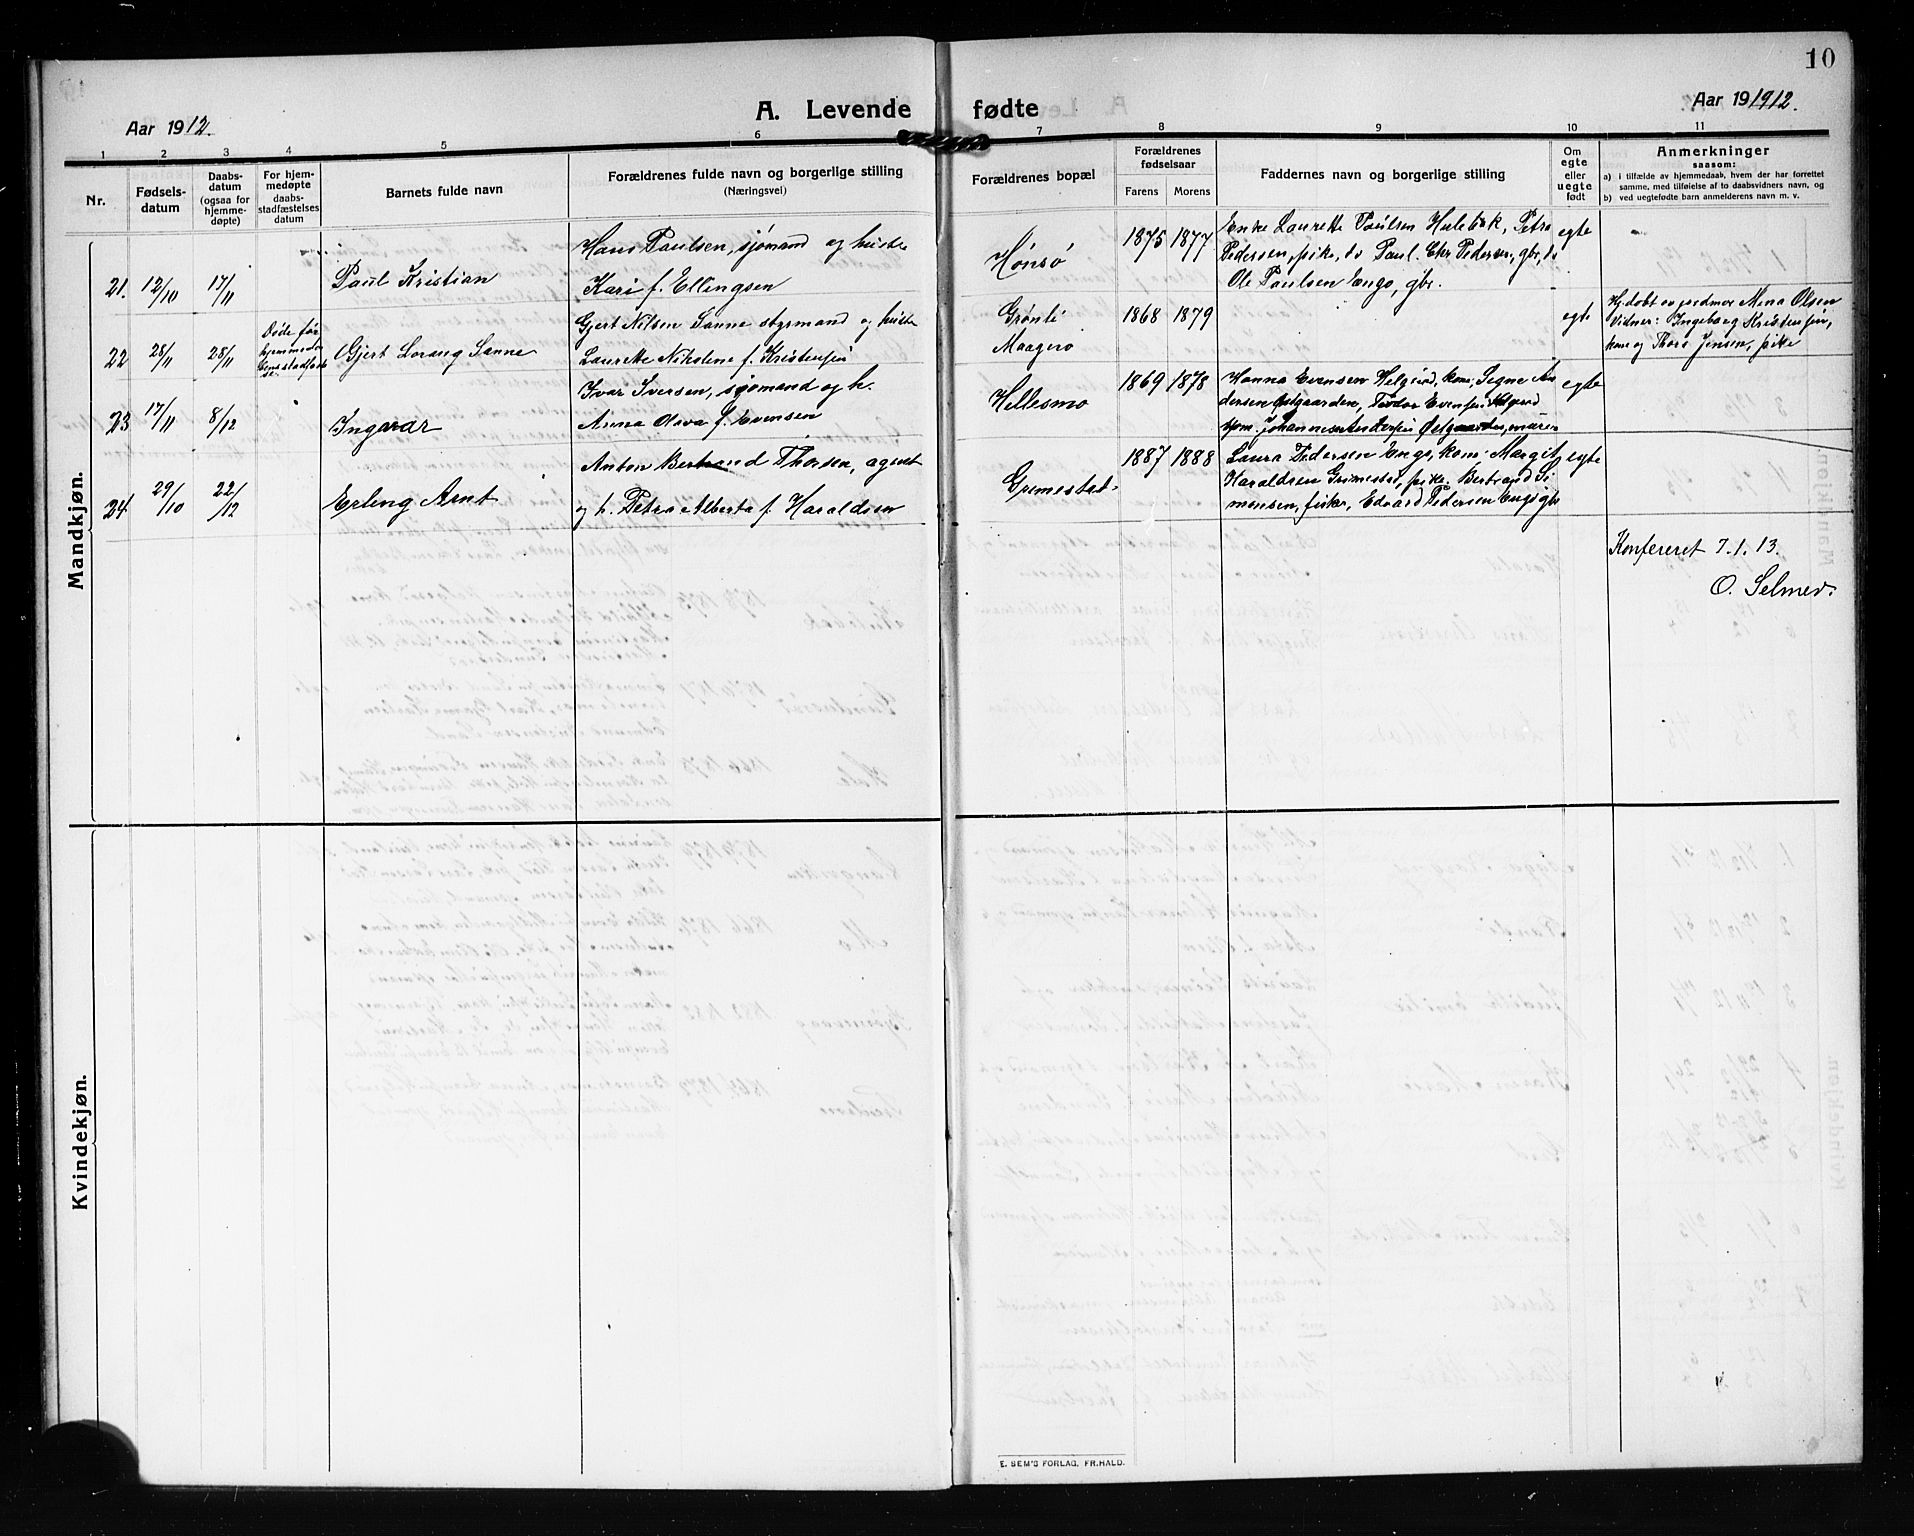 10
Aar 1912.
A. Levende fødte
Aar 191912.
1 2 3 4 5 6 7 8 9 10 11
Nr.
Fødsels-
datum
Daabs-
datum
(ogsaa for
hjemme-
døpte)
For hjem-
medøpte
daabs-
stadfæstelses
datum
Barnets fulde navn
Forældrenes fulde navn og borgerlige stilling
(Næringsvei)
Forældrenes bopæl
Forældrenes
fødselsaar
Farens Morens
Faddernes navn og borgerlige stilling
Om
egte
eller
uegte
født
Anmerkninger
saasom:
a) i tilfælde av hjemmedaab, hvem der har forrettet
samme, med tilføielse av to daabsvidners navn, og
b) ved uegtefødte barn anmelderens navn m. v.
Mandkjøn.
21. 12/10 17/11 Paul Kristian
Hans Paulsen, sjømand og hustru
Kari f. Ellingsen
Hønsø
1875 1877
Enke Laurette Paulsen Hulebak, Petra
Pedersen, pike, do Paul. Chr Pedersen, gbr, do
Ole Paulsen Engø, gbr.
egte
22 28/11 28/11
Døde før
hjemmedaa
bens stadfæstel
se.
Gjert Lorang Sanne
Gjert Nilsen Sanne styrmand og hustru
Laurette Nikoline f. Kristensen
Grønli
Maagerø
1868 1879
egte
Hj. døbt av jordmor Mina Olsen
Vidner: Ingeborg Kristensen,
kone og Thora Jensen, pike
23 17/11 8/12 Ingvar
Ivar Iversen, sjømand og h.
Anna Osva f. Evensen
Hellesmo
1869 1878
Hanna Evensen Helgerød, kone, Signe An
dersen Østgaarden, Teodor Evensen Helgerød
sjøm. Johannes Andersen Østgaarden, murer
egte
24. 29/10 22/12 Erling Arnt
Anton Bertrand Thorsen, agent
og h. Petra Alberta f. Haraldsen
Gremestad
1887 1888
Laura Pedersen Engø, kone. Margit
Haraldsen Grimestad, pike. Bertrand Si
monsen, fisker, Edvard Pedersen Engø gbr
egte
Konfereret 7.1.13.
O. Selmer.
Kvindekjøn.
E. SEM'S FORLAG, FR.HALD.